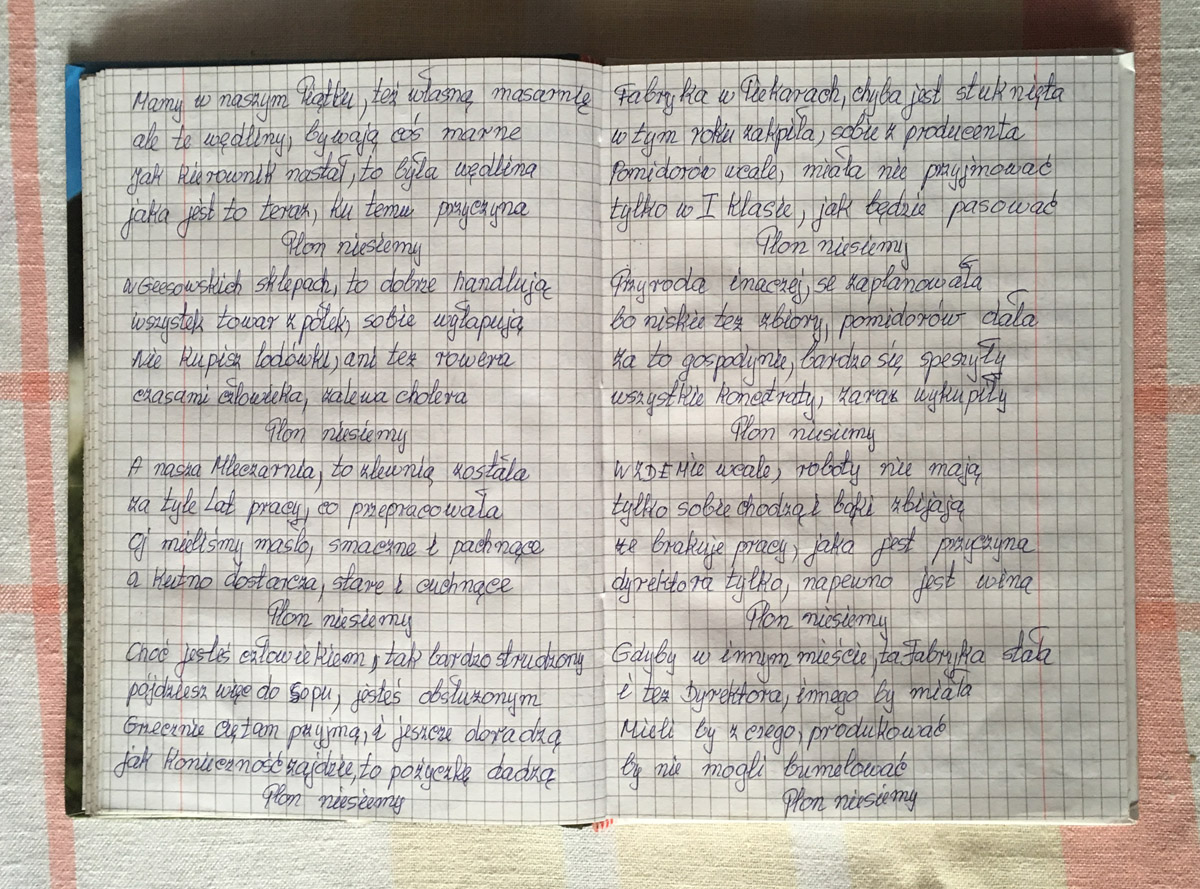 Mamy w naszym Piątku, też własną masarnię
ale te wędliny, bywają coś marne
Jak kierownik nastał, to była wędlina
jaka jest to teraz, ku temu przyczyna
Plon niesiemy
w Geesowskich sklepach, to dobrze handlują
wszystek towar z półek, sobie wyłapują
Nie kupisz lodówki, ani też rowera
czasami człowieka, zalewa cholera
Plon niesiemy
A nasza Mleczarnia, to zlewnią została
za tyle Lat pracy, co przepracowała
Oj mieliśmy masło, smaczne i pachnące
a Kutno dostarcza, stare i cuchnące
Plon niesiemy
Choć jesteś człowiekiem, tak bardzo strudzony
pójdziesz więc do Sopu, jesteś obsłużonym
Grzecznie Cię tam przyjmą, i jeszcze doradzą
jak Konieczność zajdzie, to pożyczkę dadzą
Plon niesiemy
Fabryka w Piekarach, chyba jest stuknięta
w tym roku zakpiła, sobie z producenta
Pomidorów wcale, miała nie przyjmować
tylko w I klasie, jak będzie pasować
Plon niesiemy
Przyroda inaczej, se zaplanowała
bo niskie też zbiory, pomidorów dała
za to gospodynie, bardzo się speszyły
wszystkie koncetraty, zaraz wykupiły
Plon niesiemy
W ZDEMie wcale, roboty nie mają
tylko sobie chodzą i bąki zbijają
że brakuje pracy, jaka jest przyczyna
dyrektora tylko, napewno jest winą
Plon niesiemy
Gdyby w innym mieście, ta Fabryka stała
i też Dyrektora, innego by miała
Mieli by z czego, produkować
by nie mogli bumelować
Plon niesiemy